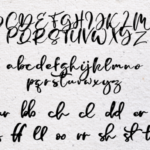 ABCDEFGHIJKLM
NOPQRSTUVWXYZ
abcdefghijklmno
pqrstuvwxyz
bb ch cl dd er
ff ll oo rr sh st